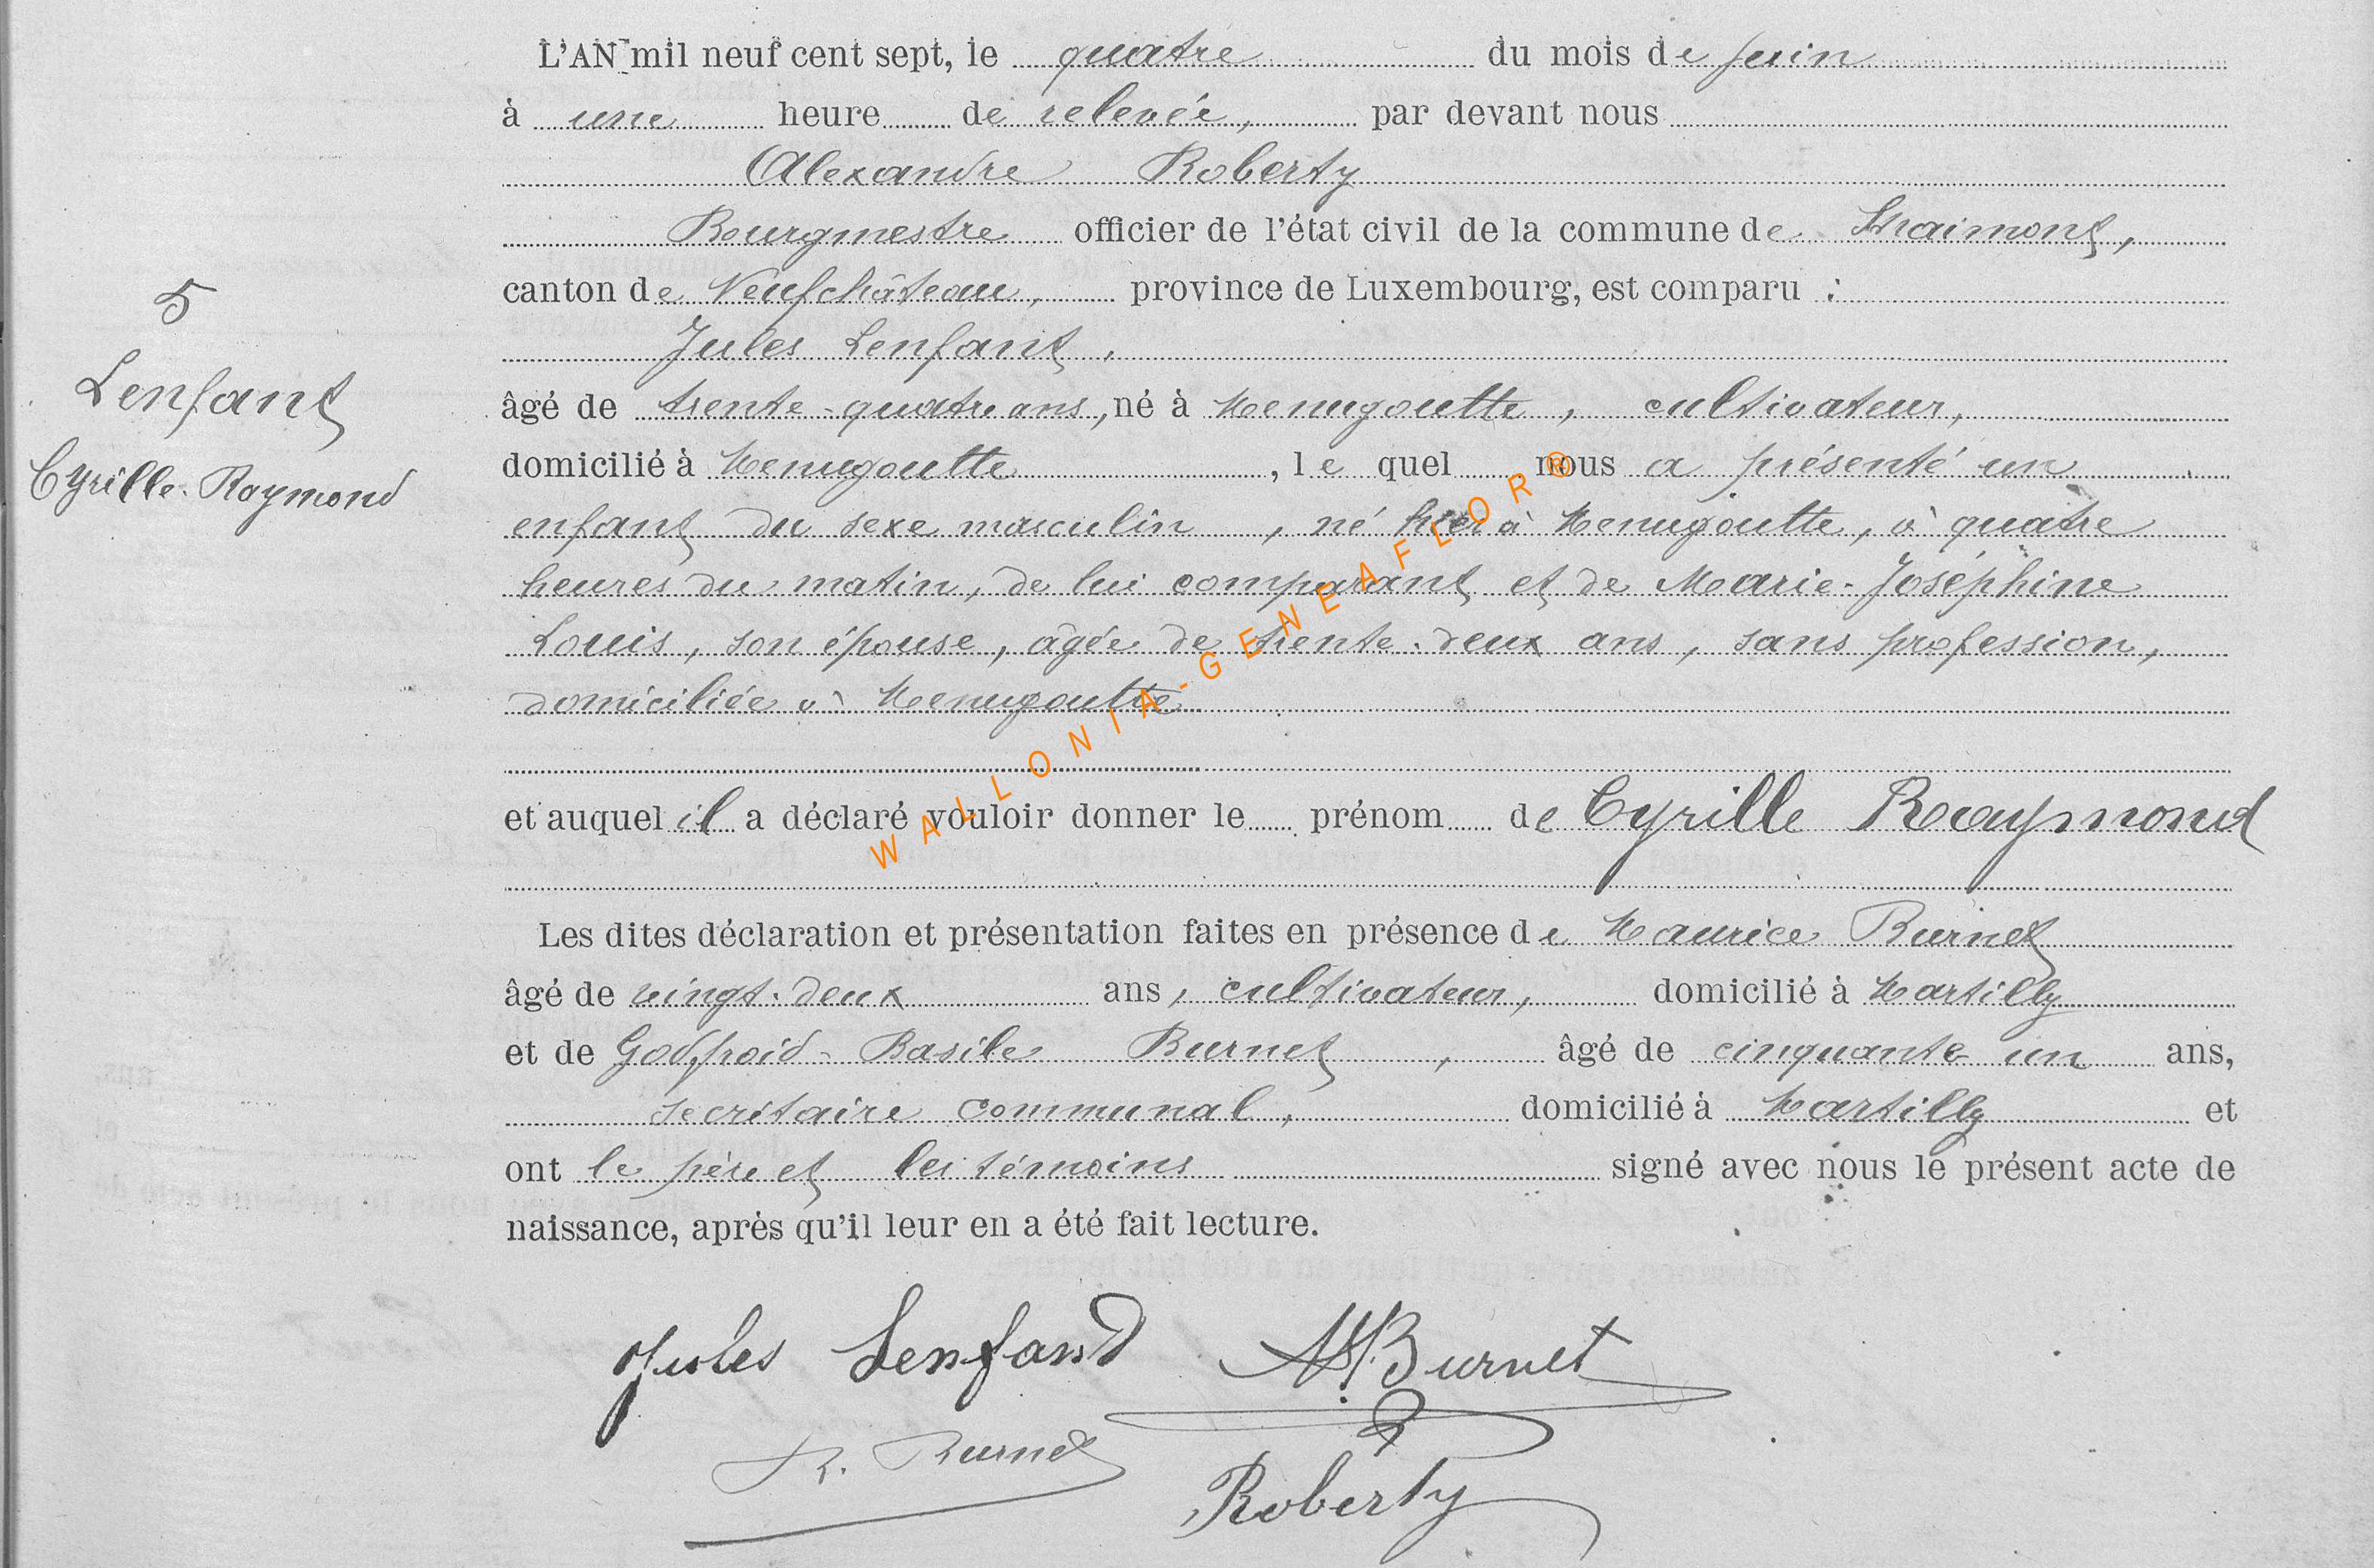 L'AN mil neuf cent sept, le quatre du mois de juin
à une heure de relevée, par devant nous
Alexandre Roberty
Bourgmestre officier de l'état civil de la commune de Straimont,
canton de Neufchâteau, province de Luxembourg, est comparu :
Jules Lenfant,
âgé de trente-quatre ans, né à Menugoutte, cultivateur,
domicilié à Menugoutte, le quel nous a présenté un
enfant du sexe masculin, né hier à Menugoutte, à quatre
heures du matin, de lui comparant et de Marie-Joséphine
Louis, son épouse, âgée de trente-deux ans, sans profession,
domiciliée à Menugoutte
et auquel il a déclaré vouloir donner le prénom de Cyrille Raymond
Les dites déclaration et présentation faites en présence de Maurice Burnet
âgé de vingt-deux ans, cultivateur, domicilié à Martilly
et de Godfroid-Basile Burnet, âgé de cinquante un ans,
secrétaire communal, domicilié à Martilly et
ont le père et les témoins signé avec nous le présent acte de
naissance, après qu'il leur en a été fait lecture.
5
Lenfant
Cyrille-Raymond
Jules Lenfant
Burnet
Burnet
Roberty
WALLONIA-GENEAFLOR®